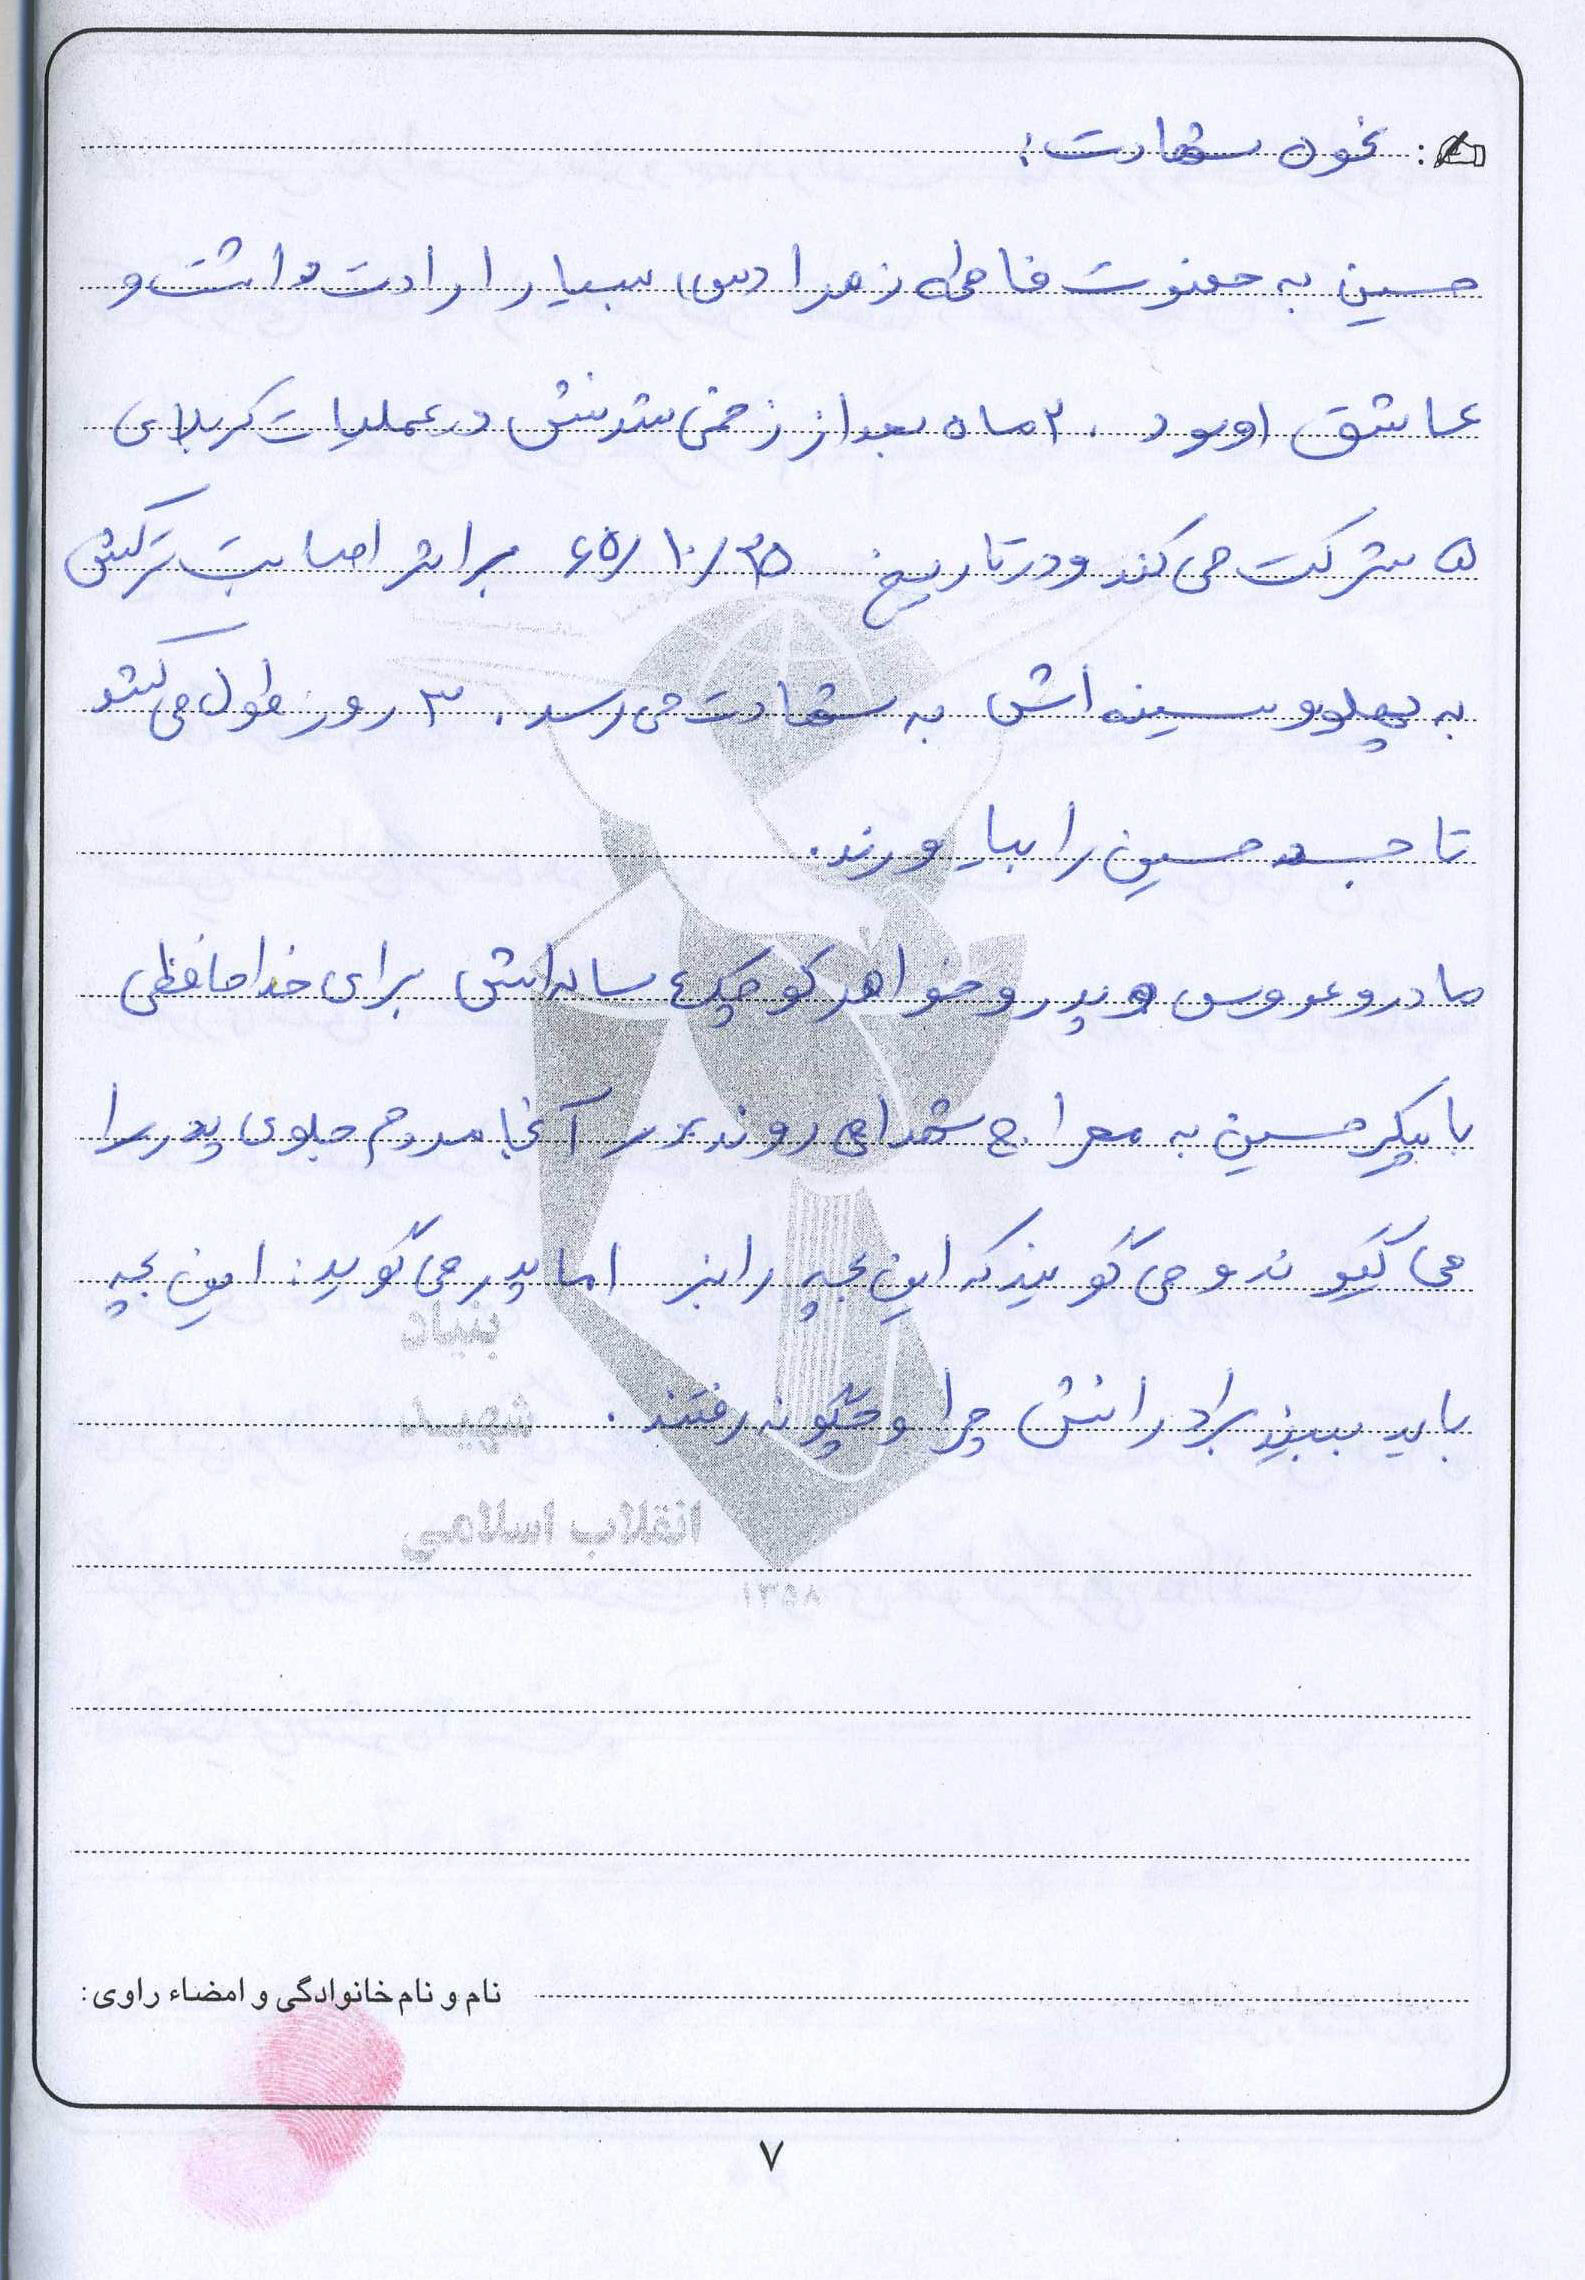 نحوه شهادت:
حسین به حضرت فاطمه زهرا (س) بسیار ارادت داشت و
عاشق او بود. ۲ ماه بعد از زخمی شدنش در عملیات کربلای
۵ شرکت می کند و در تاریخ ۶۵/۱۰/۲۵ بر اثر اصابت ترکش
به پهلو و سینه اش به شهادت می رسد. ۳ روز طول می کشد
تا جسد حسین را بیاورند.
مادر و عروس و پدر و خواهر کوچک ۴ ساله اش برای خداحافظی
با پیکر حسین به معراج شهدا می روند در آنجا مردم جلوی پدر را
می گیرند و می گویند که این بچه را نبر اما پدر می گوید: این بچه
باید ببیند برادرانش چرا و چگونه رفتند.
بنیاد
شهید
انقلاب اسلامی
۱۳۵۸
نام و نام خانوادگی و امضاء راوی:
۷